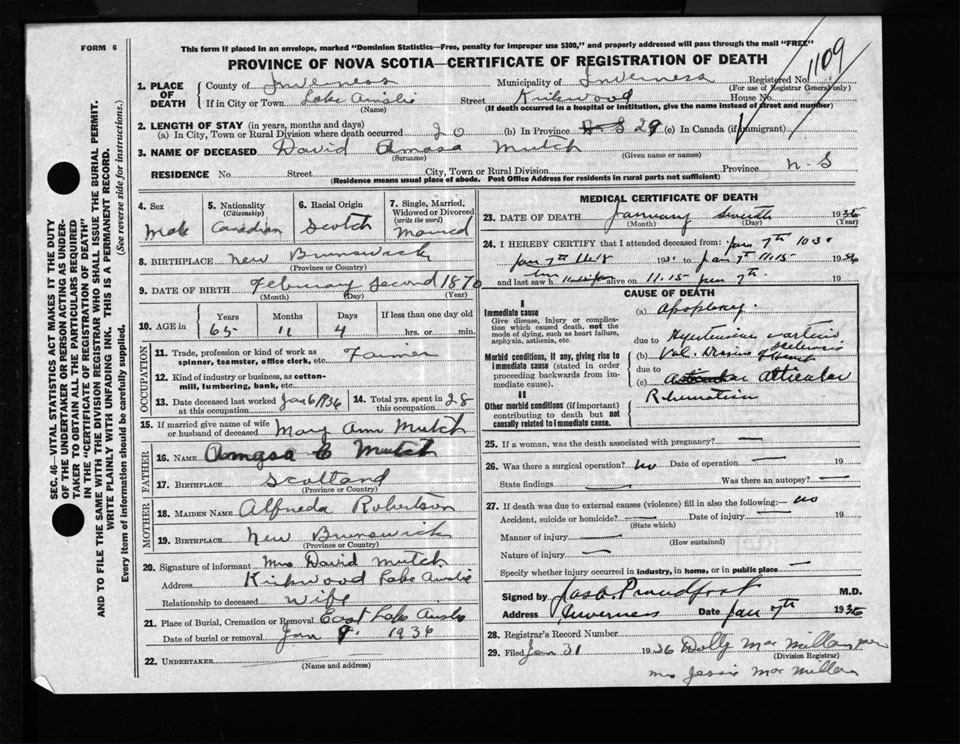 FORM 6
This form if placed in an envelope, marked "Dominion Statistics—Free, penalty for improper use $300," and properly addressed will pass through the mail "FREE"
PROVINCE OF NOVA SCOTIA—CERTIFICATE OF REGISTRATION OF DEATH
1109
1. PLACE OF DEATH
County of Inverness Municipality of Inverness Registered No.
(For use of Registrar General only)
If in City or Town Lake Ainslie Street Kirkwood House No.
(Name) (If death occurred in a hospital or institution, give the name instead of street and number)
2. LENGTH OF STAY (in years, months and days)
(a) In City, Town or Rural Division where death occurred 20 (b) In Province 29 (c) In Canada (if immigrant)
3. NAME OF DECEASED David Amasa Mutch
(Surname) (Given name or names)
RESIDENCE No. Street City, Town or Rural Division Province N. S
(Residence means usual place of abode. Post Office Address for residents in rural parts not sufficient)
4. Sex Male
5. Nationality (Citizenship) Canadian
6. Racial Origin Scotch
7. Single, Married, Widowed or Divorced (write the word) Married
8. BIRTHPLACE New Brunswick
(Province or Country)
9. DATE OF BIRTH February Second 1870
(Month) (Day) (Year)
10. AGE in Years Months Days If less than one day old
65 11 4 hrs. or min.
OCCUPATION
11. Trade, profession or kind of work as spinner, teamster, office clerk, etc. Farmer
12. Kind of industry or business, as cotton-mill, lumbering, bank, etc.
13. Date deceased last worked at this occupation Jan 6 1936 14. Total yrs. spent in this occupation 28
15. If married give name of wife or husband of deceased Mary Ann Mutch
FATHER
16. NAME Amasa E Mutch
17. BIRTHPLACE Scotland
(Province or Country)
MOTHER
18. MAIDEN NAME Alfreda Robertson
19. BIRTHPLACE New Brunswick
(Province or Country)
20. Signature of informant Mrs David Mutch
Address Kirkwood Lake Ainslie
Relationship to deceased Wife
21. Place of Burial, Cremation or Removal East Lake Ainslie
Date of burial or removal Jan 9 1936
22. UNDERTAKER
(Name and address)
MEDICAL CERTIFICATE OF DEATH
23. DATE OF DEATH January Seventh 1936
(Month) (Day) (Year)
24. I HEREBY CERTIFY that I attended deceased from: Jan 7th 1030
Jan 7th 11.15 1936
and last saw h alive on 11.15 Jan 7th 19
CAUSE OF DEATH
I
Immediate cause
Give disease, injury or complication which caused death, not the mode of dying, such as heart failure, asphyxia, asthenia, etc.
(a) Apoplexy.
due to
Morbid conditions, if any, giving rise to immediate cause (stated in order proceeding backwards from immediate cause).
(b) Val. Disease of heart
due to
(c) Articular
Rheumatism
II
Other morbid conditions (if important) contributing to death but not causally related to immediate cause.
25. If a woman, was the death associated with pregnancy? —
26. Was there a surgical operation? no Date of operation — 19
State findings — Was there an autopsy? —
27. If death was due to external causes (violence) fill in also the following:— no
Accident, suicide or homicide? — Date of injury — 19
(State which)
Manner of injury —
(How sustained)
Nature of injury —
Specify whether injury occurred in industry, in home, or in public place —
Signed by Jas. A. Proudfoot M.D.
Address Inverness Date Jan 7th 1936
28. Registrar's Record Number
29. Filed Jan 31 1936 Dolly MacMillan per
(Division Registrar)
Mrs Jessie MacMillan
SEC. 46—VITAL STATISTICS ACT MAKES IT THE DUTY
OF THE UNDERTAKER OR PERSON ACTING AS UNDER-
TAKER TO OBTAIN ALL THE PARTICULARS REQUIRED
IN THE "CERTIFICATE OF REGISTRATION OF DEATH"
AND TO FILE THE SAME WITH THE DIVISION REGISTRAR WHO SHALL ISSUE THE BURIAL PERMIT.
WRITE PLAINLY WITH UNFADING INK. THIS IS A PERMANENT RECORD.
Every item of information should be carefully supplied. (See reverse side for instructions.)